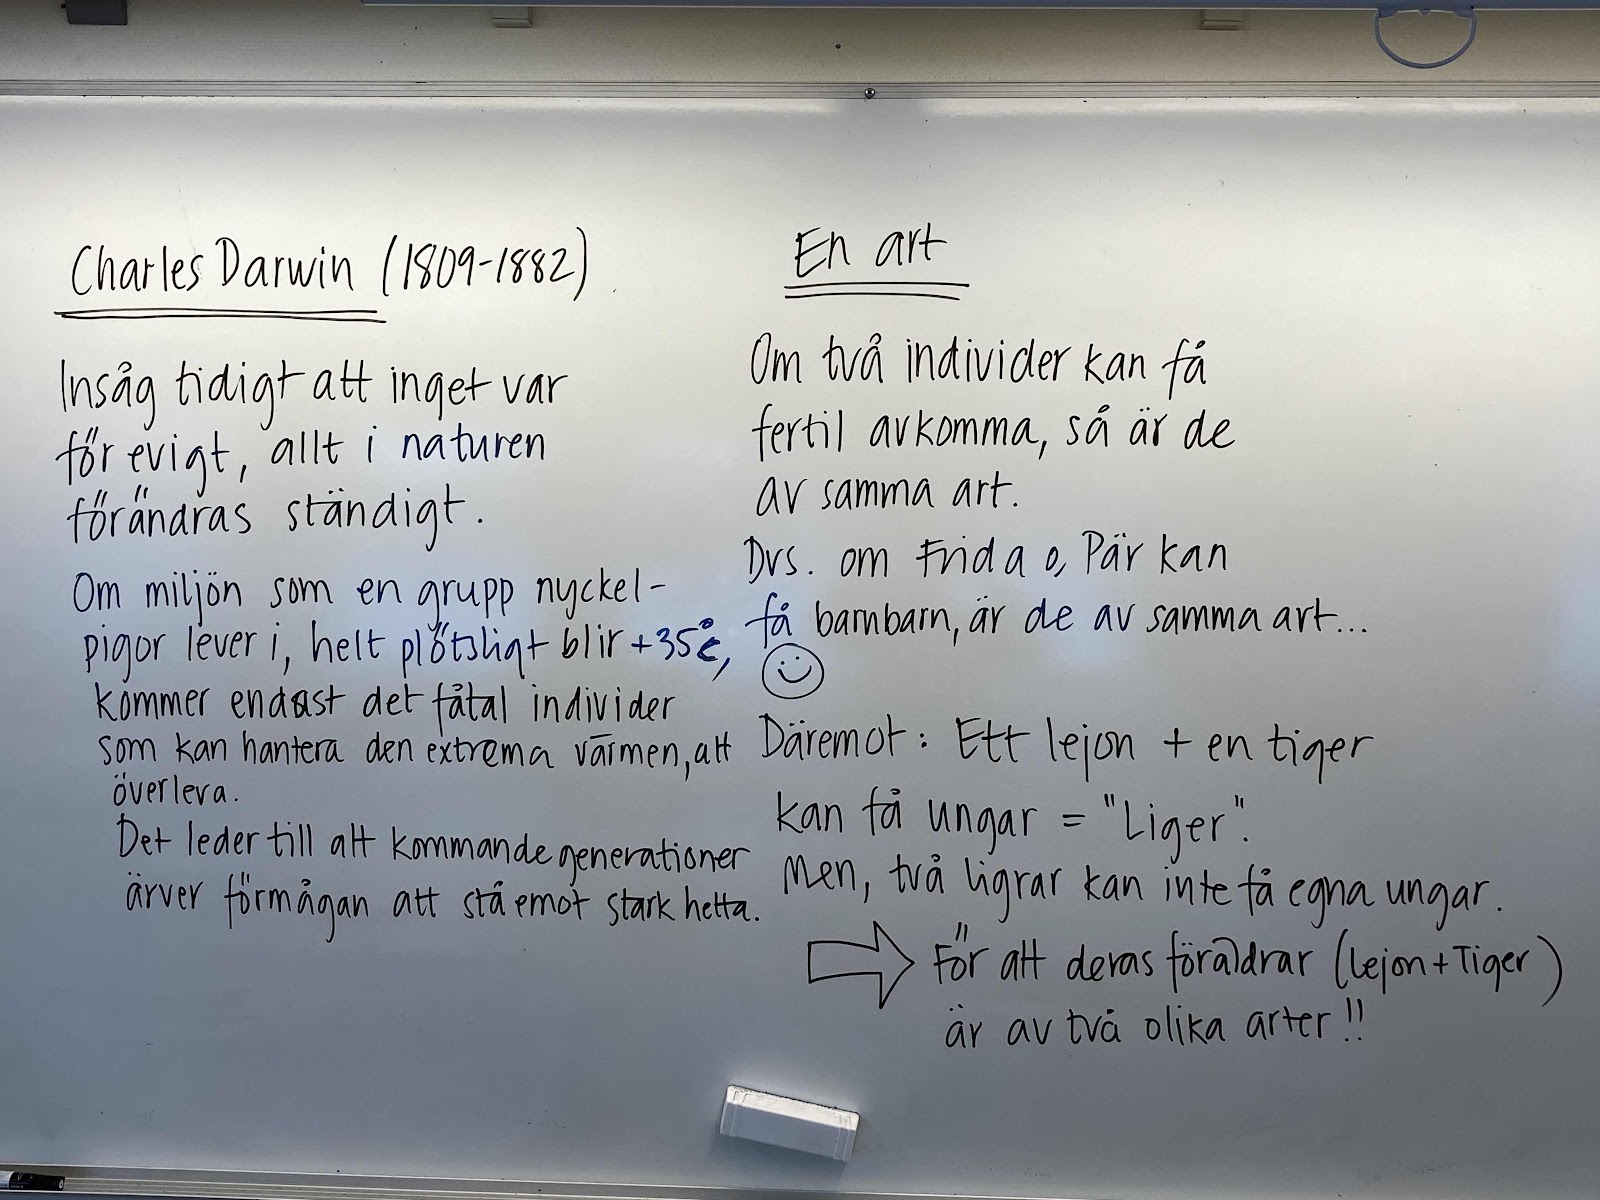 Charles Darwin (1809-1882)
Insåg tidigt att inget var
för evigt, allt i naturen
förändras ständigt.
Om miljön som en grupp nyckel-
pigor lever i, helt plötsligt blir +35°C,
kommer endast det fåtal individer
som kan hantera den extrema värmen, att
överleva.
Det leder till att kommande generationer
ärver förmågan att stå emot stark hetta.
En art
Om två individer kan få
fertil avkomma, så är de
av samma art.
Dvs. om Frida o, Pär kan
få barnbarn, är de av samma art...
Däremot: Ett lejon + en tiger
kan få ungar = "Liger".
Men, två ligrar kan inte få egna ungar.
För att deras föräldrar (lejon+Tiger)
är av två olika arter!!